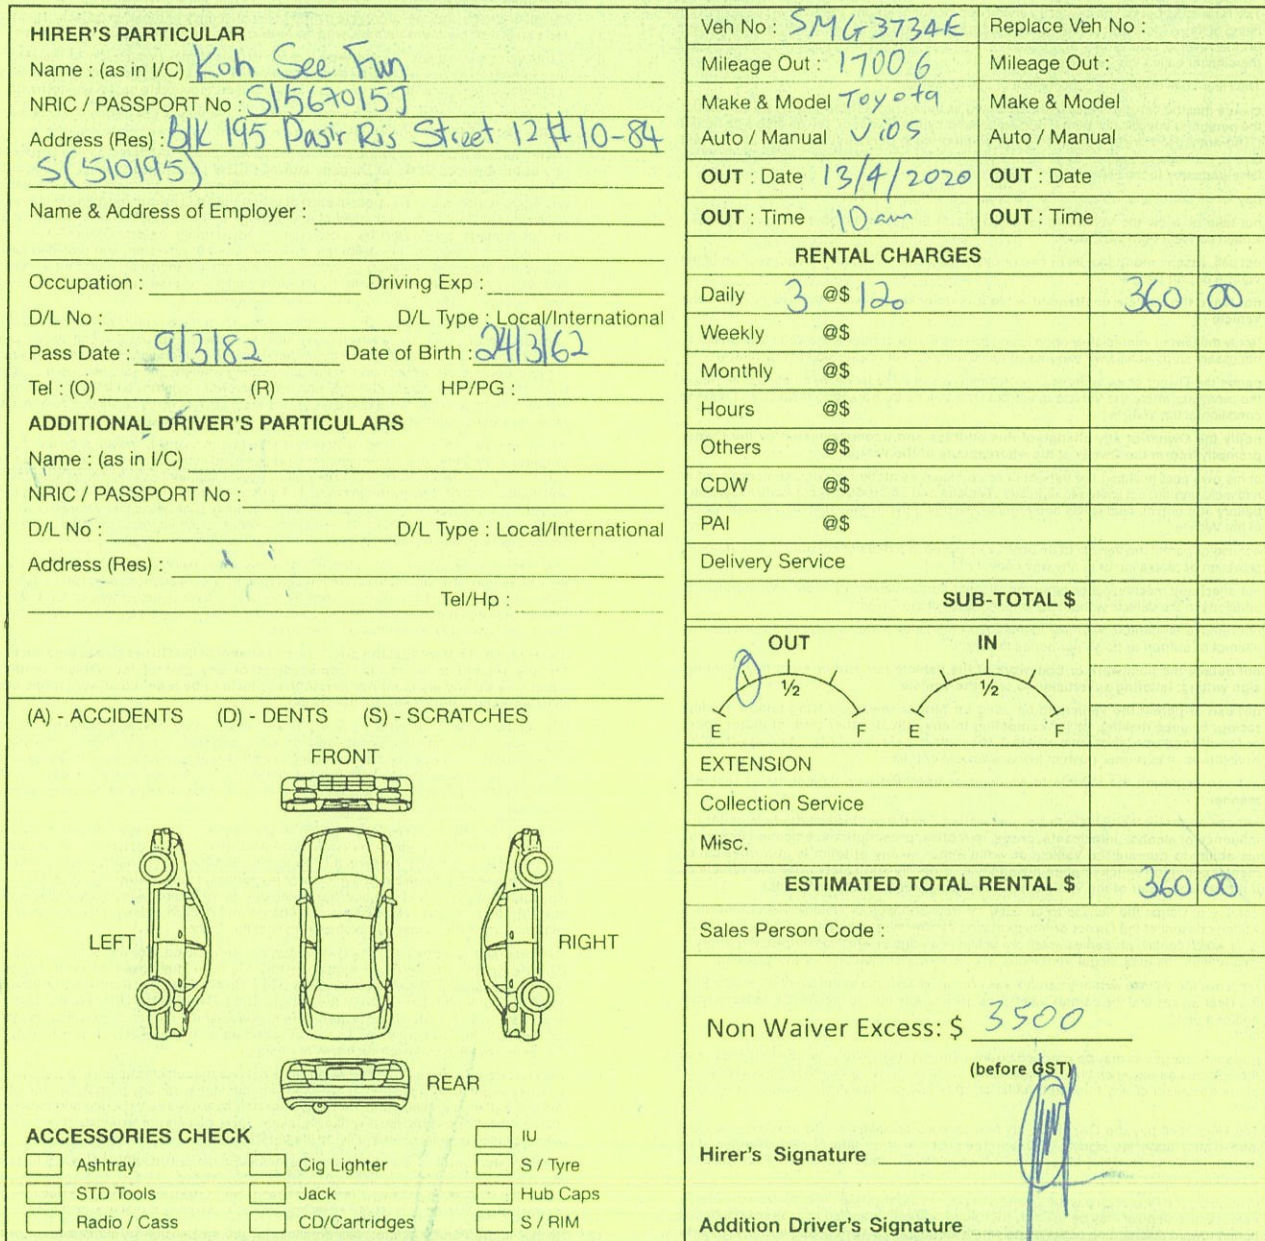 HIRER'S PARTICULAR
Name : (as in I/C) Koh See Fun
NRIC / PASSPORT No : S1567015J
Address (Res) : Blk 195 Pasir Ris Street 12 #10-84
S(510195)
Name & Address of Employer :
Occupation : Driving Exp :
D/L No : D/L Type : Local/International
Pass Date : 9/3/82 Date of Birth : 24/3/62
Tel : (O) (R) HP/PG :
ADDITIONAL DRIVER'S PARTICULARS
Name : (as in I/C)
NRIC / PASSPORT No :
D/L No : D/L Type : Local/International
Address (Res) :
Tel/Hp :
(A) - ACCIDENTS (D) - DENTS (S) - SCRATCHES
FRONT
LEFT RIGHT
REAR
ACCESSORIES CHECK
IU
Ashtray Cig Lighter S / Tyre
STD Tools Jack Hub Caps
Radio / Cass CD/Cartridges S / RIM
Veh No : SMG3734E Replace Veh No :
Mileage Out : 17006 Mileage Out :
Make & Model Toyota Make & Model
Auto / Manual Vios Auto / Manual
OUT : Date 13/4/2020 OUT : Date
OUT : Time 10am OUT : Time
RENTAL CHARGES
Daily 3 @$ 120 360 00
Weekly @$
Monthly @$
Hours @$
Others @$
CDW @$
PAI @$
Delivery Service
SUB-TOTAL $
OUT IN
½ ½
E F E F
EXTENSION
Collection Service
Misc.
ESTIMATED TOTAL RENTAL $ 360 00
Sales Person Code :
Non Waiver Excess: $ 3500
(before GST)
Hirer's Signature
Addition Driver's Signature